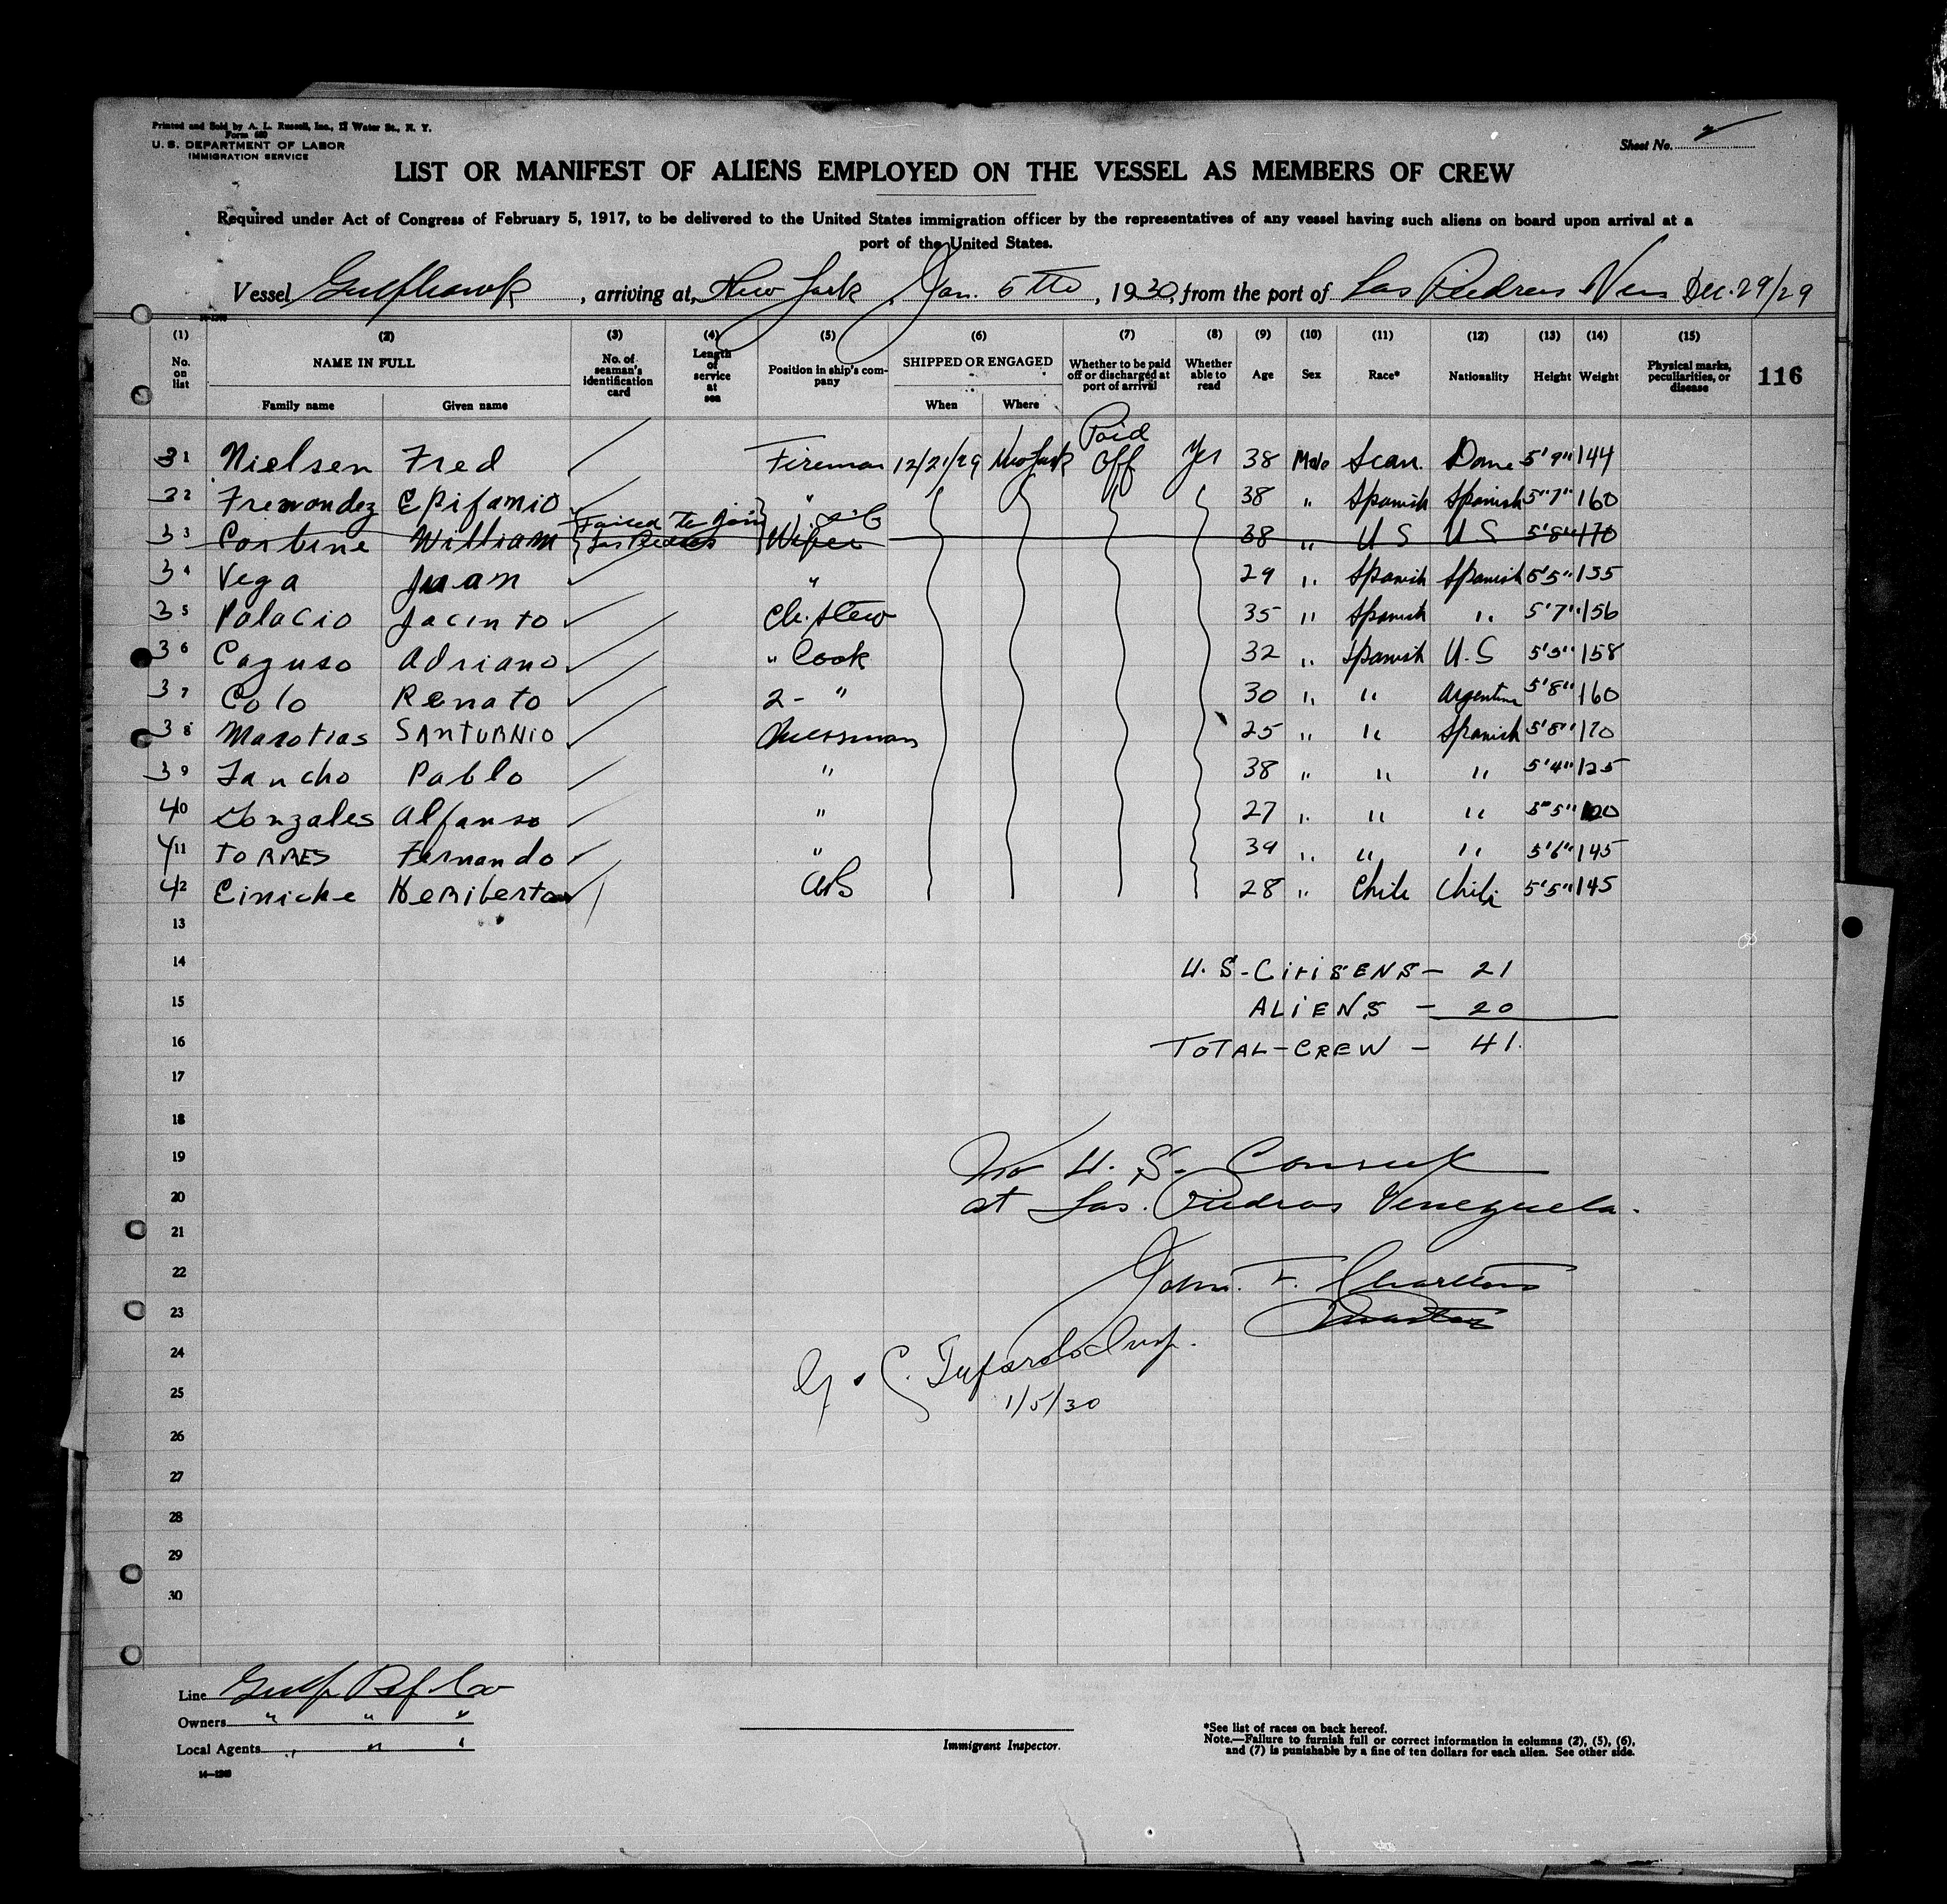 Printed and Sold by A. L. Russell, Inc., 17 Water St., N. Y.
Form 680
U. S. DEPARTMENT OF LABOR
IMMIGRATION SERVICE
Sheet No. 2
LIST OR MANIFEST OF ALIENS EMPLOYED ON THE VESSEL AS MEMBERS OF CREW
Required under Act of Congress of February 5, 1917, to be delivered to the United States immigration officer by the representatives of any vessel having such aliens on board upon arrival at a
port of the United States.
Vessel Gulfhawk, arriving at, New York Jan. 5th, 1930, from the port of Las Piedras Ven Dec. 29/29
(1) (2) (3) (4) (5) (6) (7) (8) (9) (10) (11) (12) (13) (14) (15)
No. on list NAME IN FULL No. of seaman's identification card Length of service at sea Position in ship's company SHIPPED OR ENGAGED Whether to be paid off or discharged at port of arrival Whether able to read Age Sex Race* Nationality Height Weight Physical marks, peculiarities, or disease 116
Family name Given name When Where
31 Nielsen Fred Fireman 12/21/29 New York Paid Off Yes 38 Male Scan. Dane 5'9" 144
32 Fremondez Epifamio " 38 " Spanish Spanish 5"7" 160
Failed to join
33 Corbine William Las Piedras Wiper 38 " U S U S 5'8" 170
34 Vega Juan " 29 " Spanish Spanish 5'5" 135
35 Palacio Jacinto Ch. Stew 35 " Spanish " 5'7" 156
36 Caguso Adriano " Cook 32 " Spanish U.S 5'5" 158
37 Colo Renato 2- " 30 " " Argentine 5'8" 160
38 Marotias SANTURNIO Messman 25 " " Spanish 5'8" 170
39 Sancho Pablo " 38 " " " 5'4" 125
40 Gonzales Alfonso " 27 " " " 5"5" 120
411 TORRES Fernando " 39 " " " 5'6" 145
42 Einicke Heriberto AB 28 " Chile Chile 5'5" 145
13
14 U. S-CITISENS- 21
15 ALIENS - 20
16 TOTAL-CREW - 41.
17
18
19 No U. S. Consul
20 at Las. Piedras Venezuela.
21
22 John. F. Charlton
23 Master
24 Insp.
25 1/5/30
26
27
28
29
30
Line Gulf Ref Co
Owners " " "
Local Agents " " "
14—1240
Immigrant Inspector.
*See list of races on back hereof.
Note.—Failure to furnish full or correct information in columns (2), (5), (6),
and (7) is punishable by a fine of ten dollars for each alien. See other side.